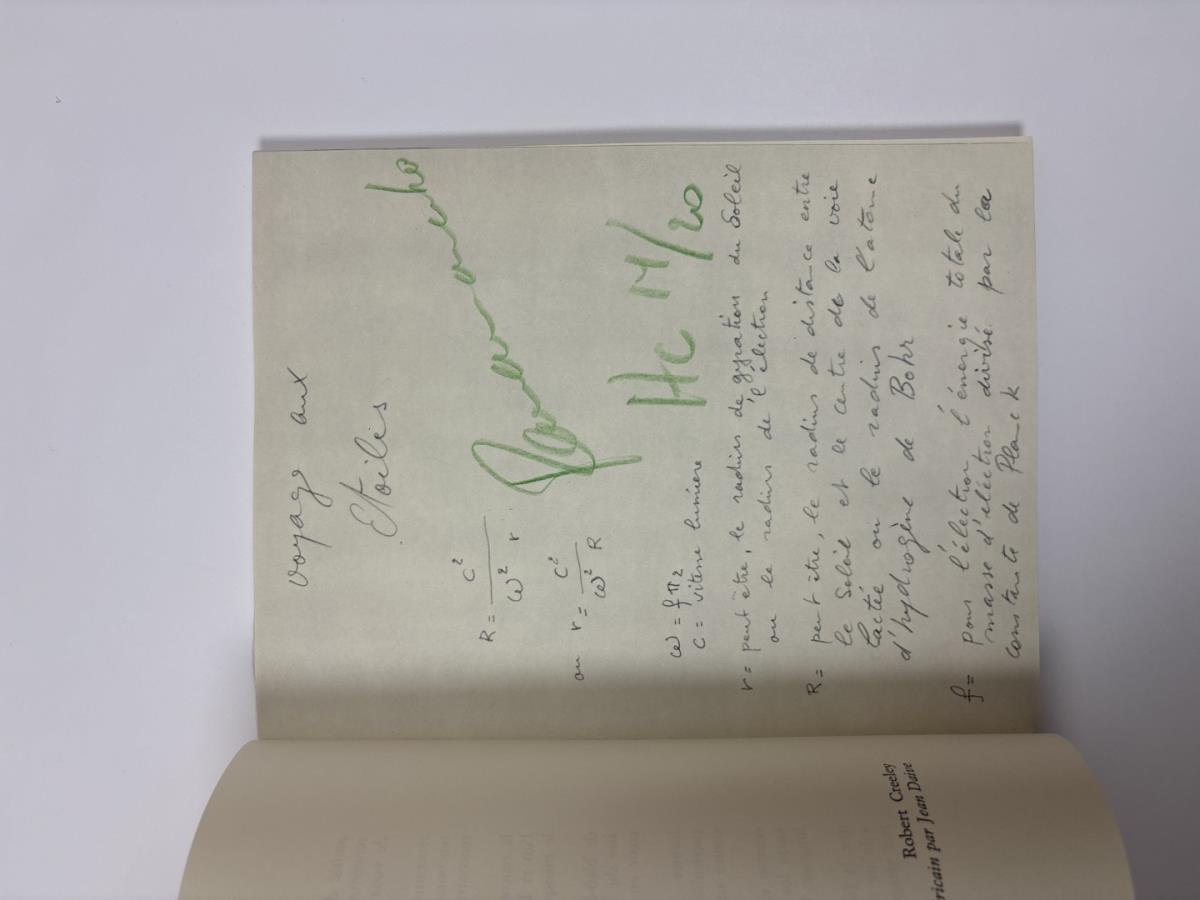 voyage aux
Etoiles
R = c² / ω² r
ou r = c² / ω² R
HC M/20
ω = f π 2
c = vitesse lumière
r = peut être, le radius de gyration du Soleil
ou le radius de l'électron
R = peut être, le radius de distance entre
le Soleil et le centre de la voie
lactée ou le radius de l'atome
d'hydrogène de Bohr
f = pour l'électron l'énergie totale du
masse d'électron divisé par la
constante de Planck
Robert Creeley
ricain par Jean Daive